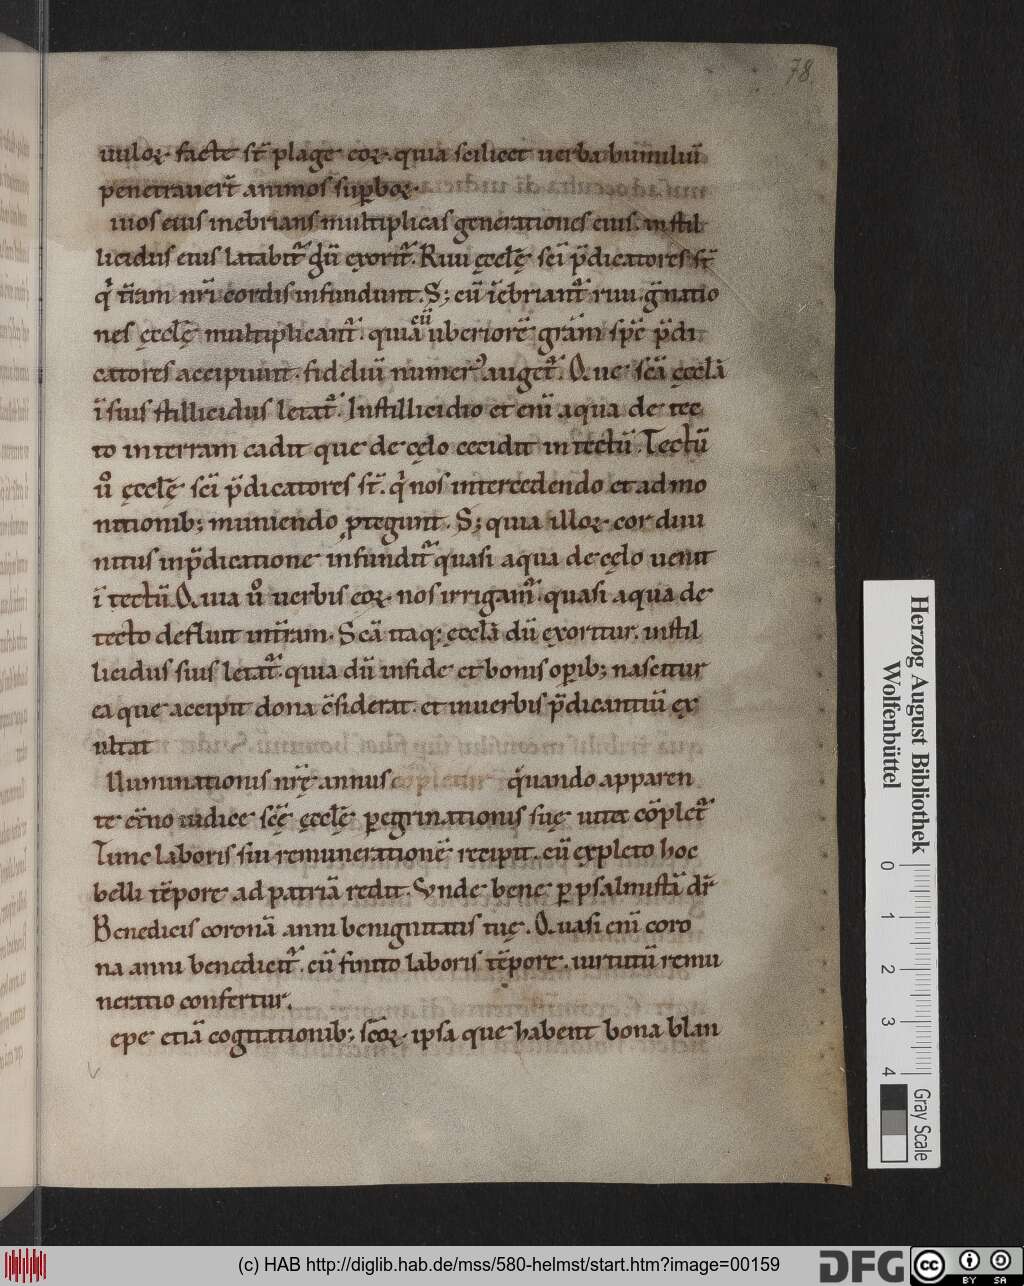 78.
uuloꝝ. facte st̄ plage eoꝝ. quia scilicet uerba humiliū
penetrauer̄ animos sup̄boꝝ.
iuos eius inebrians multiplicas generationes eius. in stil
licidiis eius letabit᷑ dū exorit᷑. Riui ęcclę̄ sc̄i p̄dicatores st̄
q̇ t̄ram nr̄i cordis infundunt. S; cū īebriant᷑ riui. ḡnatio
nes ęcclę̄ multiplicant᷑. quia cū uberiorē grām sp̄c p̄di
catores accipiunt. fideliū numerꝰ auget᷑. Que sc̄a ęcclā
ī suis stillicidiis letat᷑. In stillicidio et enī aqua de tec
to in terram cadit que de cęlo cecidit in tectū. Tectū
ū̊ ęcclę̄ sc̄i p̄dicatores st̄. q̇ nos intercedendo et admo
nitionib; muniendo ꝓtegunt. S; quia illoꝝ cor diui
nitus in p̄dicatione infundit᷑ quasi aqua de cęlo uenit
ī tectū. Quia ū̊ uerbis eoꝝ. nos irrigam᷑. quasi aqua de
tecto defluit in t̄ram. Sc̄a itaq; ęcclā dū exoritur. in stil
licidiis suis letat᷑. quia dū in fide et bonis oꝑib; nascitur
ea que accipit dona c̄siderat. et in uerbis p̄dicantiū ex
ultat
lluminationis nr̄ę annus quando apparen
te et̄no iudice sc̄ę ęcclę̄ ꝑegrinationis suę uita cōplet᷑
Tunc laboris sui remunerationē recipit. cū expleto hoc
belli tēpore ad patriā redit. Vnde bene ꝑ psalmistā dr̄
Benedicis coronā anni benignitatis tuę. Quasi enī coro
na anni benedicit᷑. cū finito laboris tēpore. uirtutū remu
neratio confertur.
epe etiā cogitationib; sc̄oꝝ. ipsa que habent bona blan
Herzog August Bibliothek
Wolfenbüttel
0 1 2 3 4
Gray Scale
(c) HAB http://diglib.hab.de/mss/580-helmst/start.htm?image=00159
DFG
cc BY SA